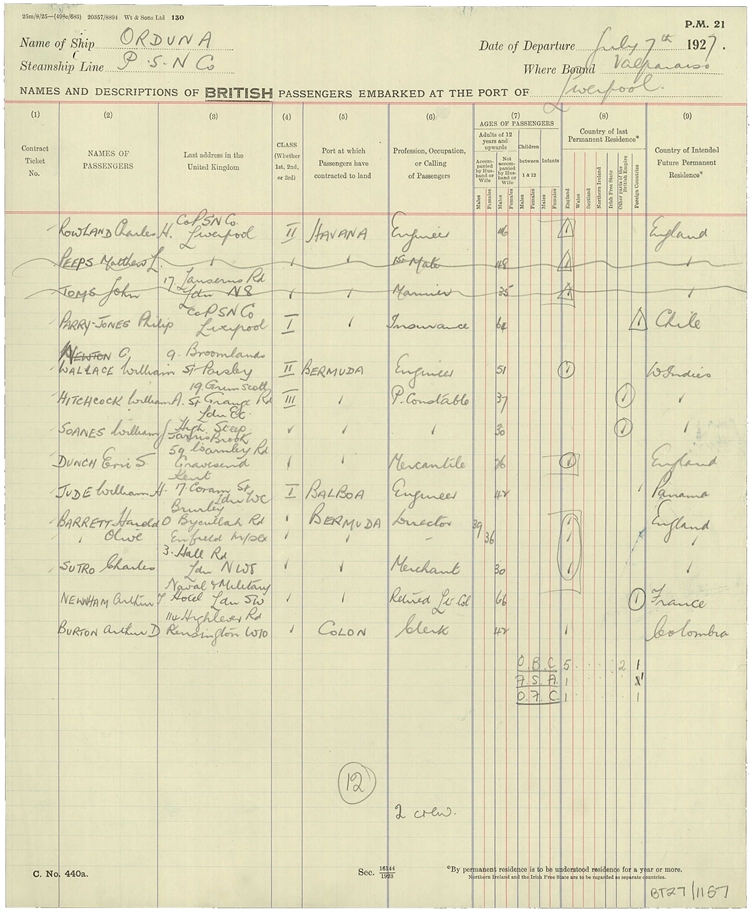 25m/8/25—(498c/683) 20357/8894 Wt & Sons Ltd 130
P.M. 21
Name of Ship ORDUNA
Date of Departure July 7th 1927.
Steamship Line P.S.N Co
Where Bound Valparaiso
NAMES AND DESCRIPTIONS OF BRITISH PASSENGERS EMBARKED AT THE PORT OF Liverpool.
(1) (2) (3) (4) (5) (6) (7) (8) (9)
Contract Ticket No.
NAMES OF PASSENGERS
Last address in the United Kingdom
CLASS (Whether 1st, 2nd, or 3rd)
Port at which Passengers have contracted to land
Profession, Occupation, or Calling of Passengers
AGES OF PASSENGERS
Adults of 12 years and upwards
Accompanied by Husband or Wife
Not accompanied by Husband or Wife
Children between 1 & 12
Infants
Males Females Males Females Males Females Males Females
Country of last Permanent Residence*
England Wales Scotland Northern Ireland Irish Free State Other parts of the British Empire Foreign Countries
Country of Intended Future Permanent Residence*
Co PSN Co
ROWLAND Charles H. Liverpool II HAVANA Engineer 46 1 England
PEEPS Matthew L. 1st Mate 48 1
17
TOMS John Ldn N8 Mariner 35 1
Co PSN Co
PARRY-JONES Philip Liverpool I Insurance 64 1 Chile
NEWTON O 9. Broomlands
WALLACE William St Paisley II BERMUDA Engineer 51 1 W Indies
19
HITCHCOCK William A. Rd III P. Constable 37 1
Ldn EC
SOANES William J High St 30 1
Jarvis Brook
59 Rd
DUNCH Eric S Gravesend Mercantile 26 1 England
Kent
JUDE William H. 7 Coram St Ldn WC I BALBOA Engineer 42 1 Panama
BARRETT Harold O Byculлah Rd BERMUDA Director 39 1 England
Olive Enfield Mpsex 36 1
3. Hall Rd
SUTRO Charles Ldn NW8 Merchant 30 1
Naval & Military
NEWHAM Arthur T Hotel Ldn SW Retired Lt Col 66 1 France
114 Highlever Rd
BURTON Arthur D Kensington W10 COLON Clerk 42 1 Colombia
O.B.C 5 2 1
F.S.A. 1
O.F.C. 1 1
12
2 crew.
C. No. 440a.
Sec. 16144/1923
*By permanent residence is to be understood residence for a year or more.
Northern Ireland and the Irish Free State are to be regarded as separate countries.
BT27/1157